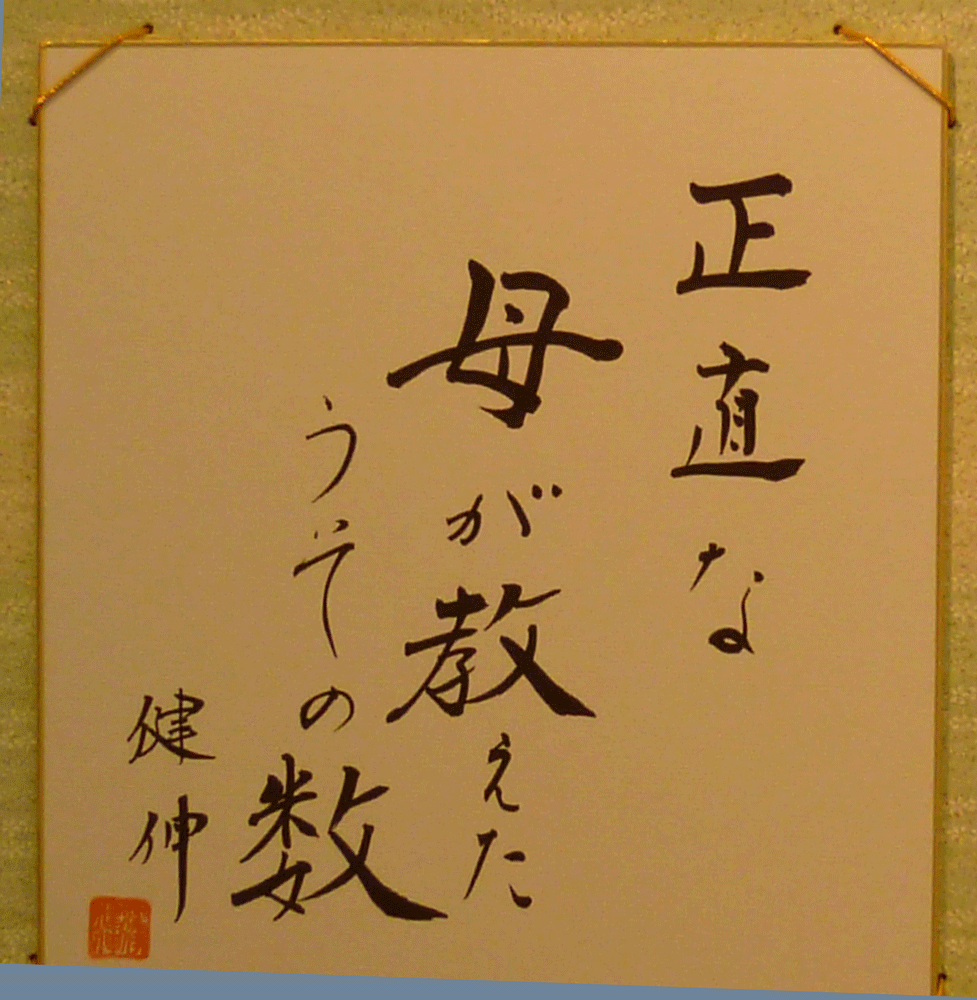 正直な
母が教えた
うその数
健伸